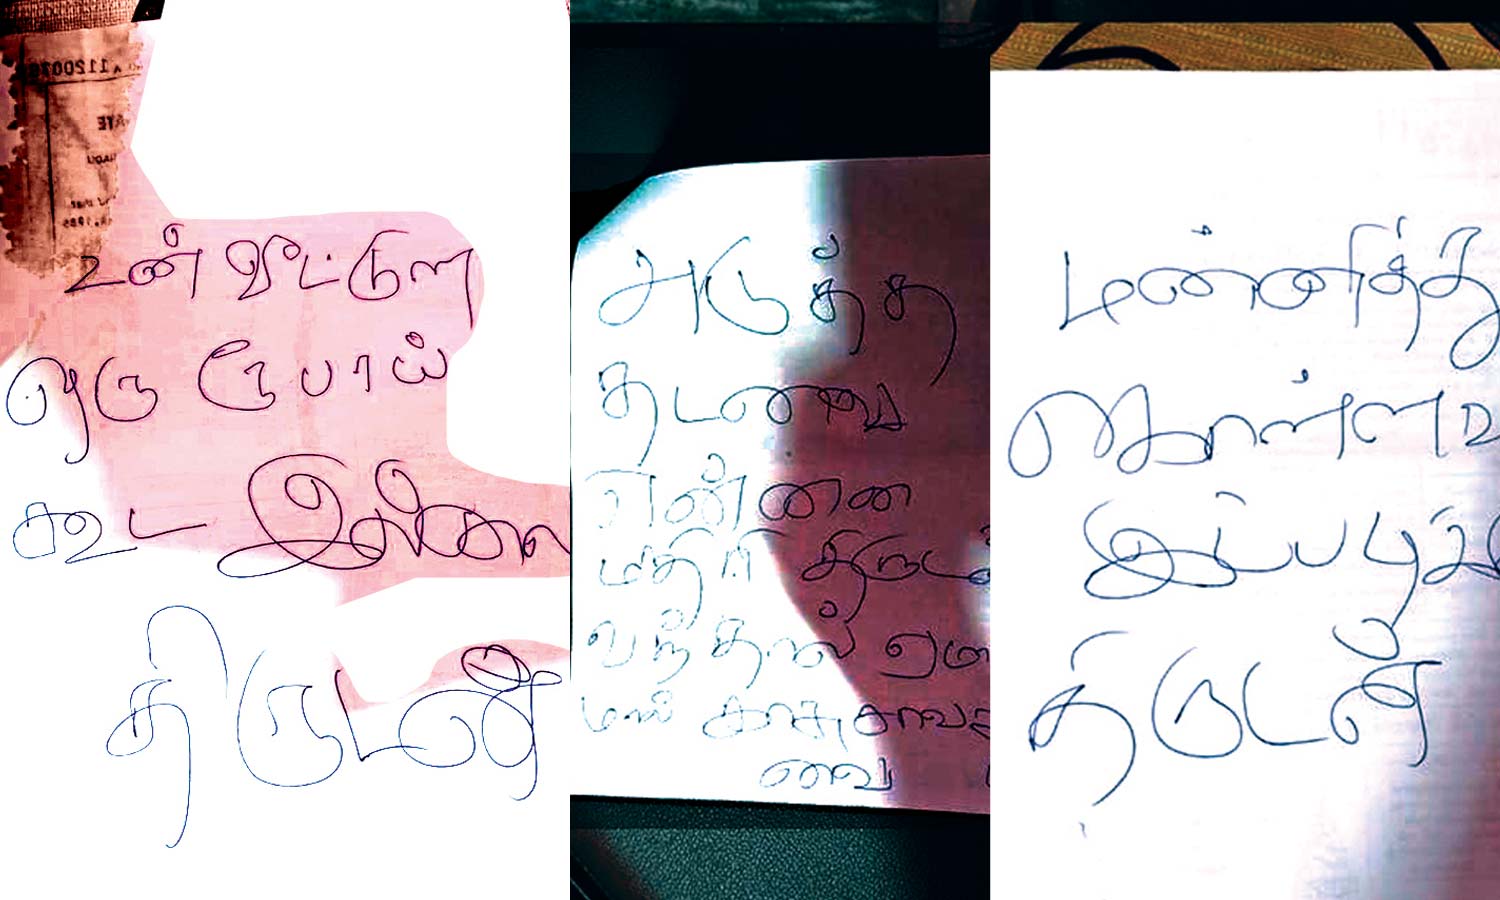 உன் வீட்டுல
ஒரு ரூபாய்
கூட இல்லை
திருடன்
அடுத்த
தடவை
என்னை
மதிரி திருட
வந்தால் ஏமா
மல் காசு
வை
மன்னித்து
கொள்ளவ
இப்படிக்
திருடன்